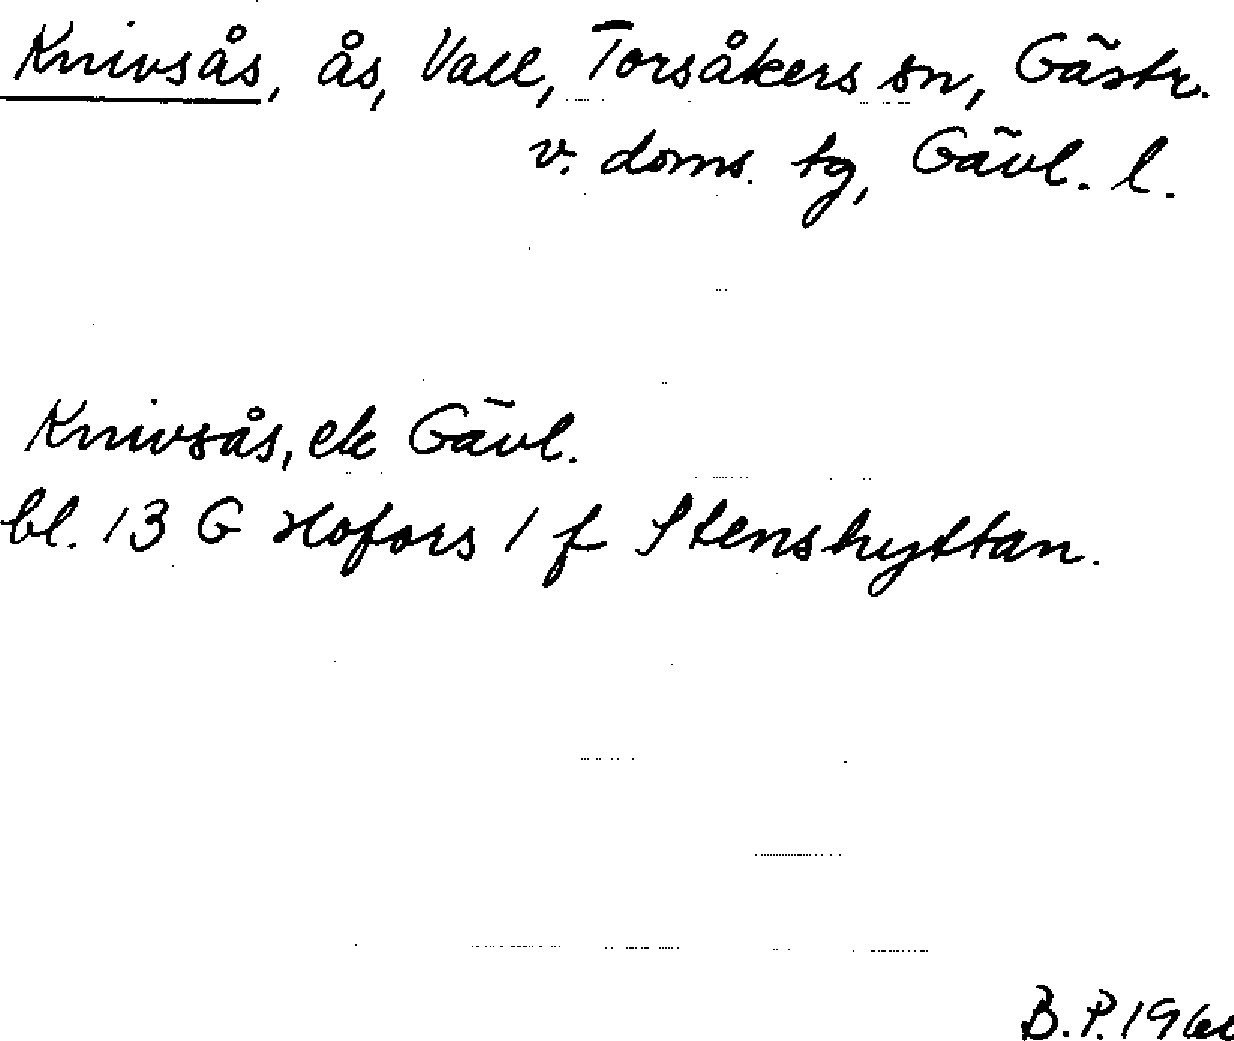 Knivsås, ås, Vall, Torsåkers sn, Gästr.
v. doms. tg, Gävl. l.
Knivsås, ek Gävl.
bl. 13 G Hofors 1 f Stenshyttan.
B.P.